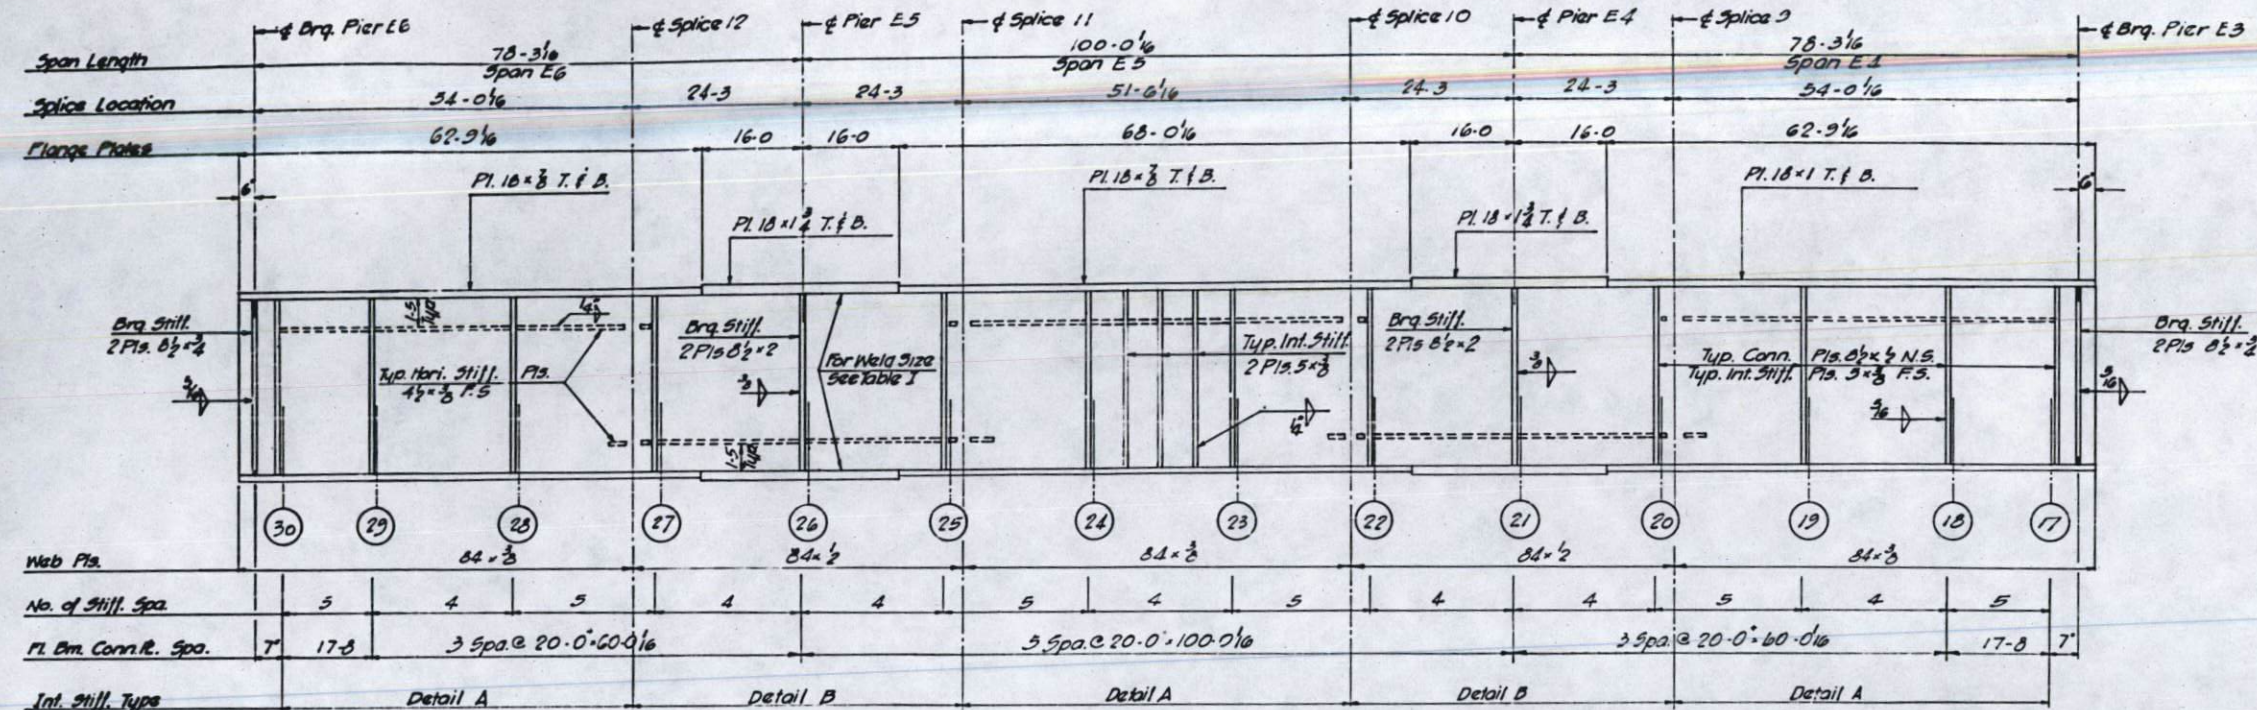 ¢ Brg. Pier E6
¢ Splice 12
¢ Pier E5
¢ Splice 11
¢ Splice 10
¢ Pier E4
¢ Splice 9
¢ Brg. Pier E3
Span Length
78-3 1/16
Span E6
100-0 1/16
Span E5
78-3 1/16
Span E4
Splice Location
54-0 1/16
24-3
24-3
51-6 1/16
24-3
24-3
54-0 1/16
Flange Plates
62-9 1/16
16-0
16-0
68-0 1/16
16-0
16-0
62-9 1/16
6"
Pl. 18 x 7/8 T. & B.
Pl. 18 x 1 3/4 T. & B.
Pl. 18 x 7/8 T. & B.
Pl. 18 x 1 3/4 T. & B.
Pl. 18 x 1 T. & B.
6"
1-5
Typ.
1/4"
Brg. Stiff.
2 Pls. 8 1/2 x 3/4
5/16
Typ. Hori. Stiff. Pls.
4 1/2 x 3/8 F.S
Brg. Stiff.
2 Pls 8 1/2 x 2
3/8
For Weld Size
See Table I
1-5
Typ.
Typ. Int. Stiff.
2 Pls. 5 x 3/8
1/4"
Brg. Stiff.
2 Pls 8 1/2 x 2
3/8
Typ. Conn. Pls. 8 1/2 x 1/2 N.S.
Typ. Int. Stiff. Pls. 5 x 3/8 F.S.
5/16
Brg. Stiff.
2 Pls 8 1/2 x 3/4
5/16
30
29
28
27
26
25
24
23
22
21
20
19
18
17
Web Pls.
84 x 3/8
84 x 1/2
84 x 3/8
84 x 1/2
84 x 3/8
No. of Stiff. Spa.
5
4
5
4
4
5
4
5
4
4
5
4
5
Fl. Bm. Conn. R. Spa.
7"
17-8
3 Spa. @ 20-0" = 60-0 1/16
5 Spa. @ 20-0" = 100-0 1/16
3 Spa. @ 20-0" = 60-0 1/16
17-8
7"
Int. Stiff. Type
Detail A
Detail B
Detail A
Detail B
Detail A